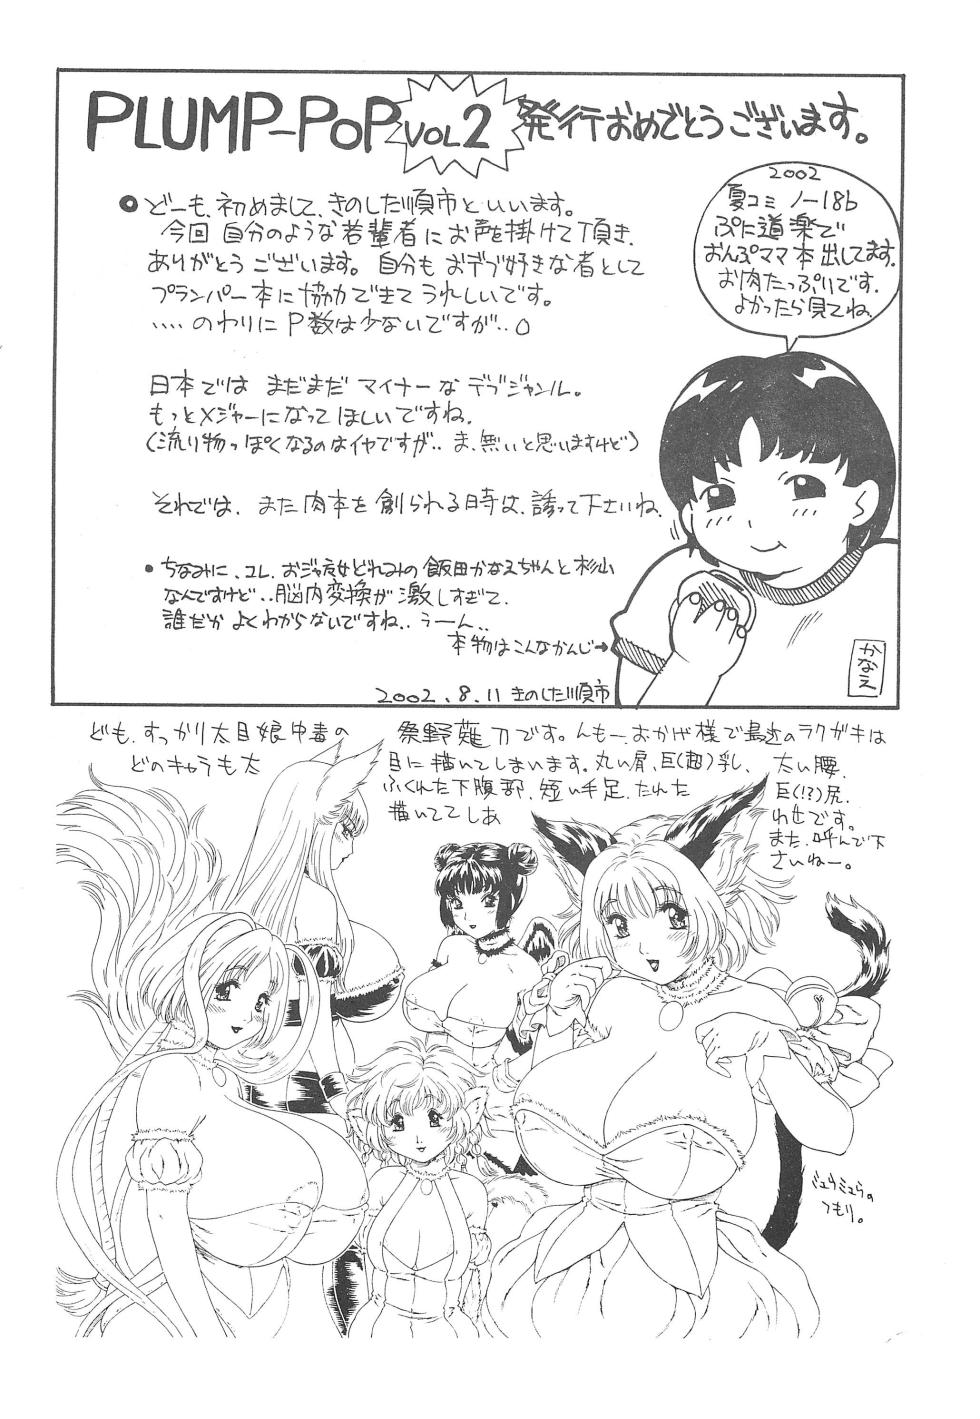 PLUMP-POP VOL2 発行おめでとうございます。
2002
夏コミ ノー18b
ぷに道楽で
おんぷママ本出してます。
お肉たっぷりです。
よかったら見てね。
●どーも、初めまして、きのした順市といいます。
今回 自分のような若輩者にお声を掛けて頂き、
ありがとうございます。自分も おデブ好きな者として
プランパー本に協力できてうれしいです。
‥‥のわりに P数は少ないですが‥。
日本では まだまだ マイナーな デブジャンル。
もっとメジャーになって ほしいですね。
(流り物っぽくなるのはイヤですが‥ま、無いと思いますけど)
それでは、また肉本を創られる時は、誘って下さいね。
●ちなみに、コレ、おジャ魔女どれみの飯田かなえちゃんと杉山
なんですけど‥脳内変換が激しすぎて、
誰だか よくわからないですね‥うーん‥
本物はこんなかんじ→
かなえ
2002.8.11 きのした順市
ども、すっかり太目娘中毒の 粂野薙刀です。んもー、おかげ様で最近のラクガキは
どのキャラも太目に描いてしまいます。丸い肩、巨(超)乳、太い腰、
ふくれた下腹部、短い手足、たれた巨(!?)尻、
描いてて しあわせです。
また、呼んで下
さいねー。
ミュウミュウの
つもり。